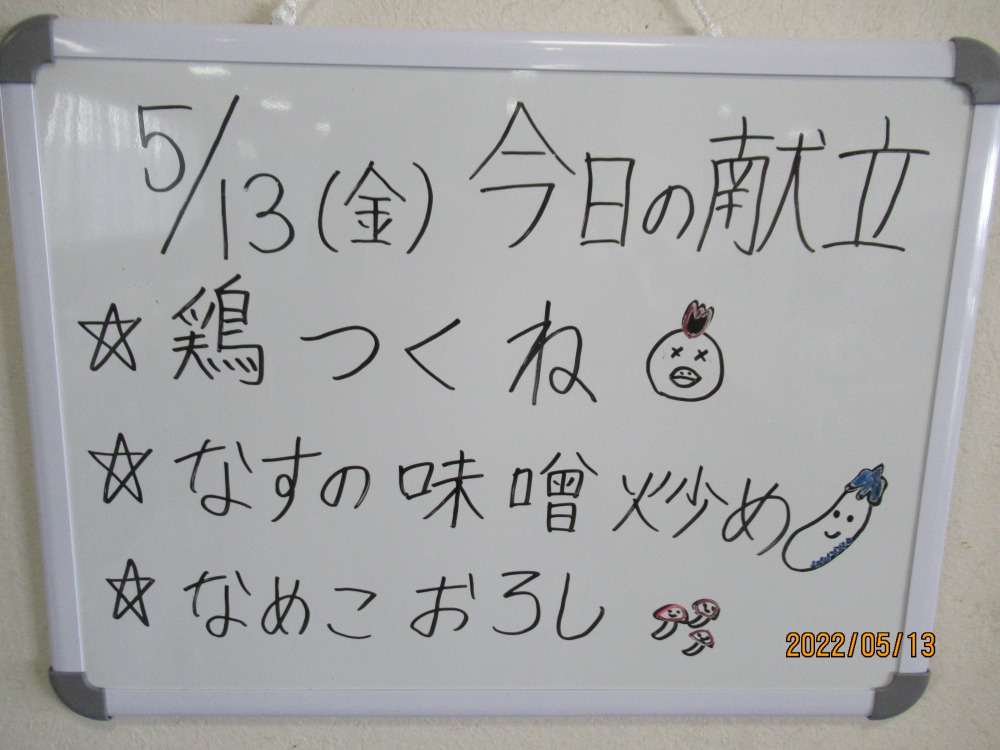 5/13(金) 今日の献立
☆ 鶏つくね
☆ なすの味噌炒め
☆ なめこおろし
2022/05/13